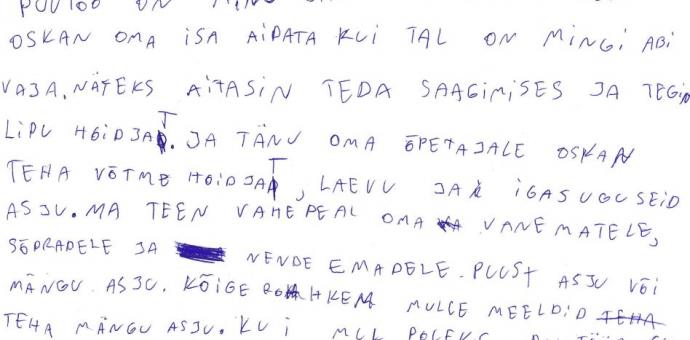 PUUTÖÖ ON MINU
OSKAN OMA ISA AIDATA KUI TAL ON MINGI ABI
VAJA. NÄTEKS AITASIN TEDA SAAGIMISES JA TEGID
LIPU HOIDJAT. JA TÄNU OMA ÕPETAJALE OSKAN
TEHA VÕTME HOIDJAT, LAEVU JA IGASUGUSEID
ASJU. MA TEEN VAHEPEAL OMA VANEMATELE,
SÕPRADELE JA NENDE EMADELE. PUUST ASJU VÕI
MÄNGU ASJU. KÕIGE ROHKEM MULLE MEELDID TEHA
TEHA MÄNGU ASJU. KUI MUL POLEKS